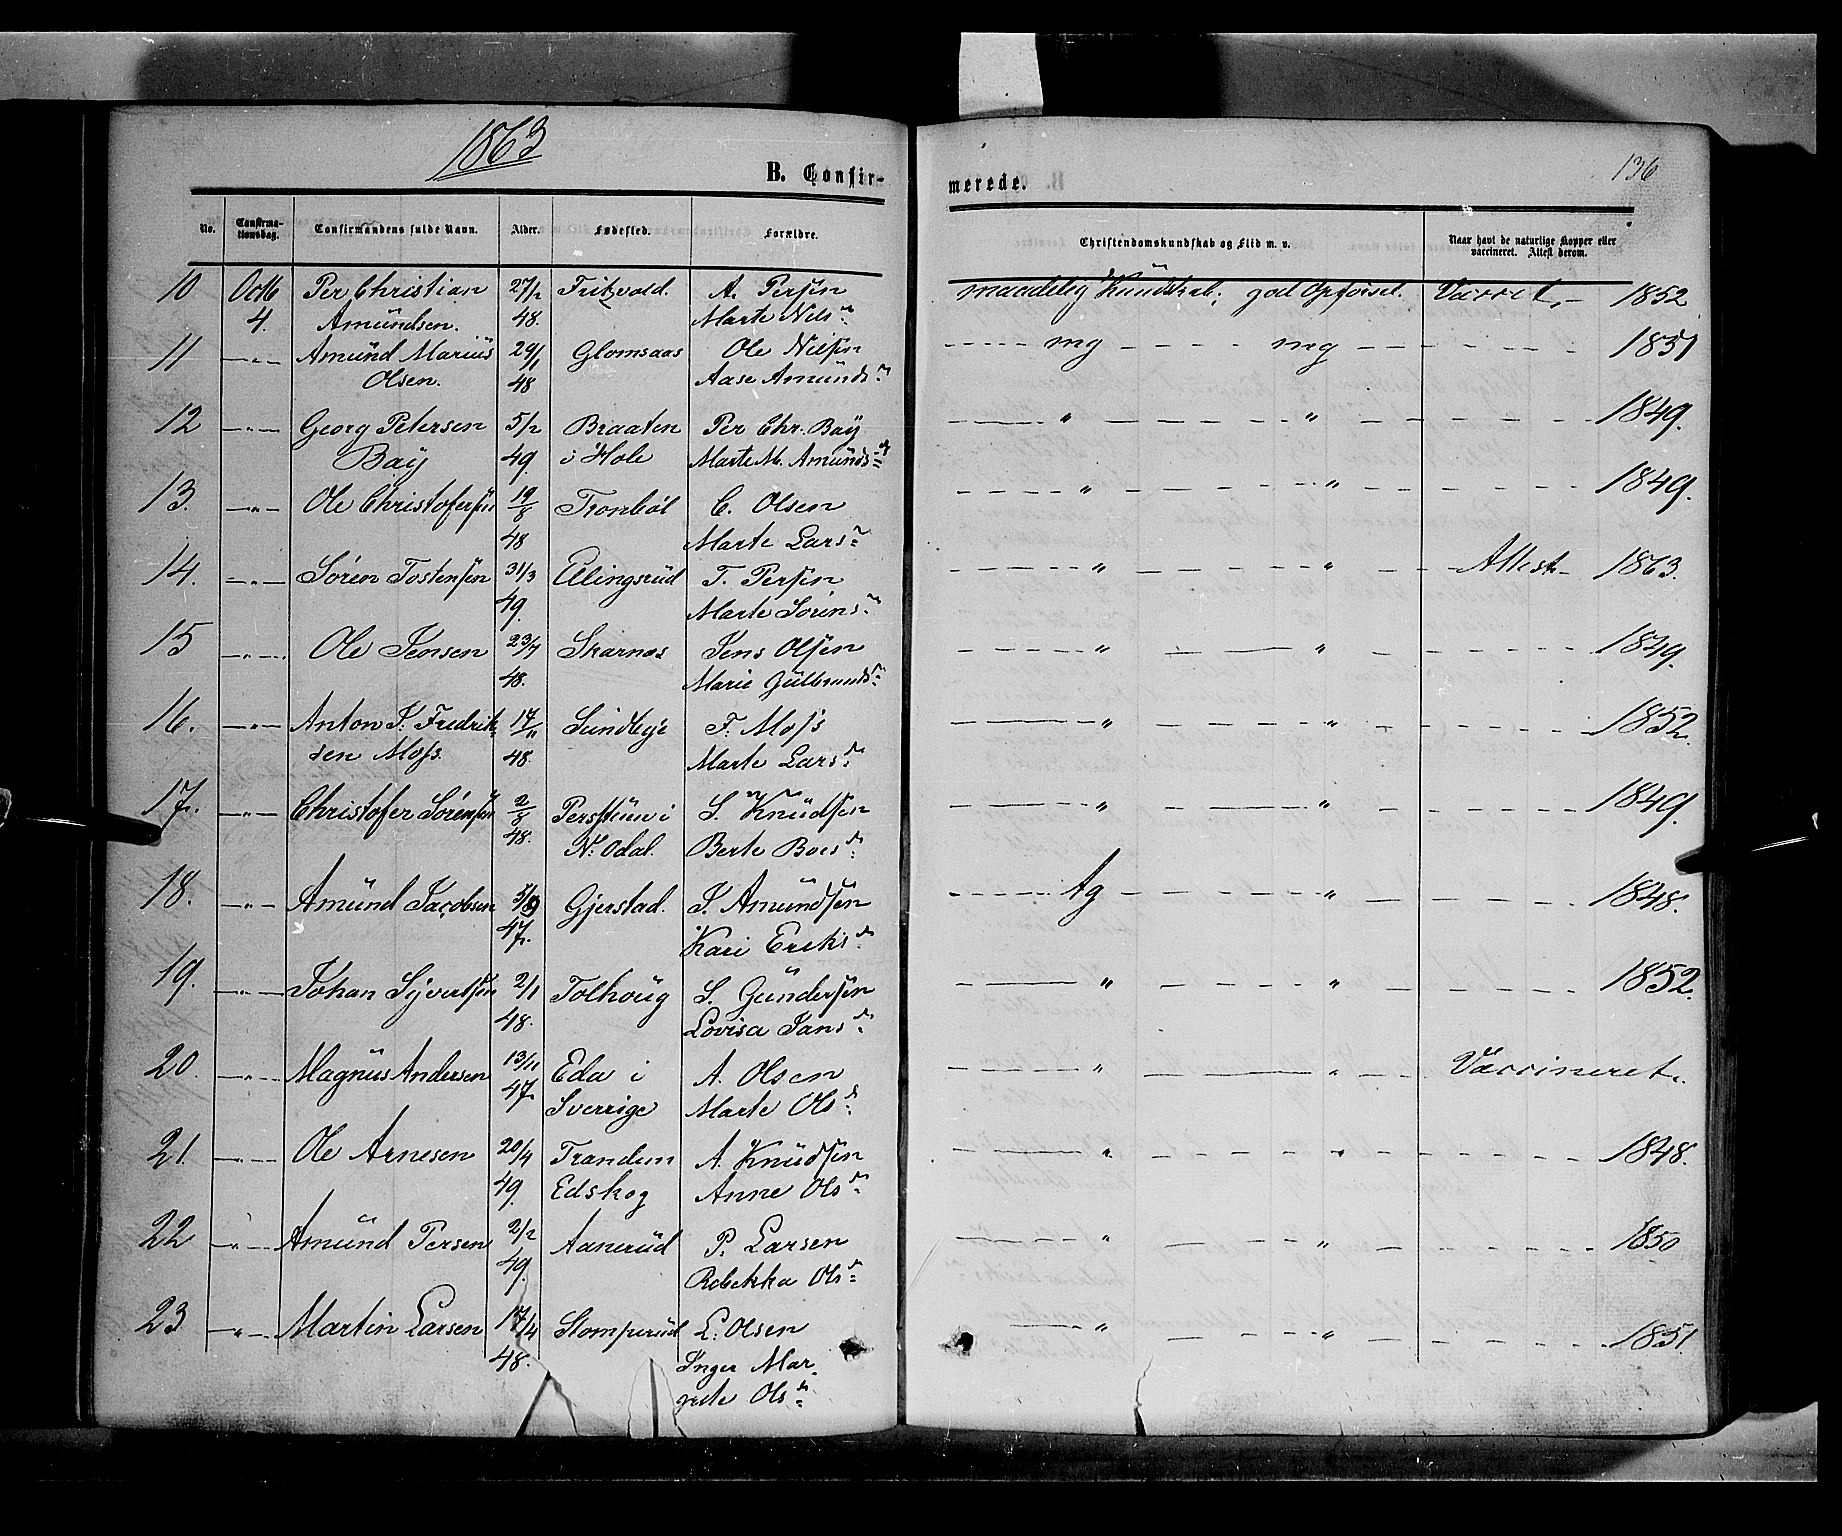 1863
B. Confir-
merede.
136
No.
Confirma-
tionsdag.
Confirmandens fulde Navn.
Alder.
Fødested.
Forældre.
Christendomskundskab og Flid m. v.
Naar havt de naturlige Kopper eller
vaccineret. Attest derom.
10 Octb Per Christian 27/2 Fritzvold. A. Persen maadelig Kundskab, god Opførsel. Vaccet, - 1852
4. Amundsen. 48. Marte Nilsn
11 -"- Amund Marius 29/1 Glomsaas Ole Nilsen - - - mg - - - - mg - - - - 1851
Olsen. 48 Aase Amundsn
12 -"- Georg Petersen 5/2 Braaten Per Chr. Bay " " 1849.
Bay 49. i Hole Marte M. Amundsd
13. -"- Ole Christofersen 19/8 Trønbøl C. Olsen " " 1849.
48 Marte Larsn
14. -"- Søren Tostensen 31/3 Ålingsrud T. Persen " " Attest - 1863.
49. Marte Sørensn
15 -"- Ole Jensen 23/7 Skarnæs Jens Olsen " " 1849.
48. Marie Gulbrandsd
16. -"- Anton J. Fredrik- 17/11 Sundbye F. Moss " " 1852.
sen Moss. 48. Marte Larsd
17. -"- Christofer Sørensen 2/8 Persstuen i S. Knudsen " " 1849.
48. N. Odal. Berte Boesd
18. -"- Amund Jacobsen 3/9 Gjerstad. J. Amundsen Tg " 1848.
47. Kari Eriksd
19. -"- Johan Syvertsen 2/1 Tolhoug S. Gundersen " " 1852.
48. Lovisa Jansd
20. -"- Magnus Andersen 13/11 Eda i A. Olsen " " Vaccineret.
47. Sverrige Marte Olsd
21. -"- Ole Arnesen 20/4 Trandem A. Knudsen " " 1848.
49. Edskog Anne Olsd
22 -"- Amund Persen 2/2 Aanerud P. Larsen " " 1850
49. Rebekka Olsd
23 -"- Martin Larsen 17/4 Slomperud L. Olsen " " 1851.
48. Inger Mar-
grete Olsd